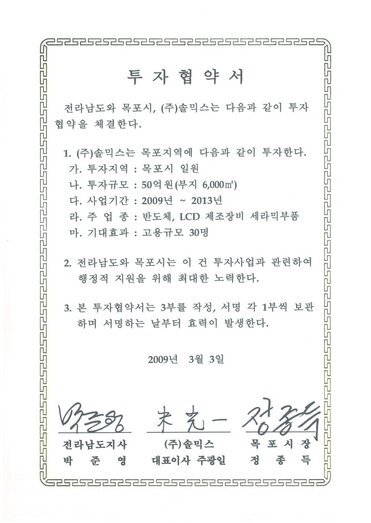 투자협약서
전라남도와 목포시, (주)솔믹스는 다음과 같이 투자
협약을 체결한다.
1. (주)솔믹스는 목포지역에 다음과 같이 투자한다.
가. 투자지역 : 목포시 일원
나. 투자규모 : 50억원(부지 6,000㎡)
다. 사업기간 : 2009년 ~ 2013년
라. 주 업 종 : 반도체, LCD 제조장비 세라믹부품
마. 기대효과 : 고용규모 30명
2. 전라남도와 목포시는 이 건 투자사업과 관련하여
행정적 지원을 위해 최대한 노력한다.
3. 본 투자협약서는 3부를 작성, 서명 각 1부씩 보관
하며 서명하는 날부터 효력이 발생한다.
2009년 3월 3일
박준영 朱光一 정종득
전라남도지사 (주)솔믹스 목포시장
박준영 대표이사 주광일 정종득